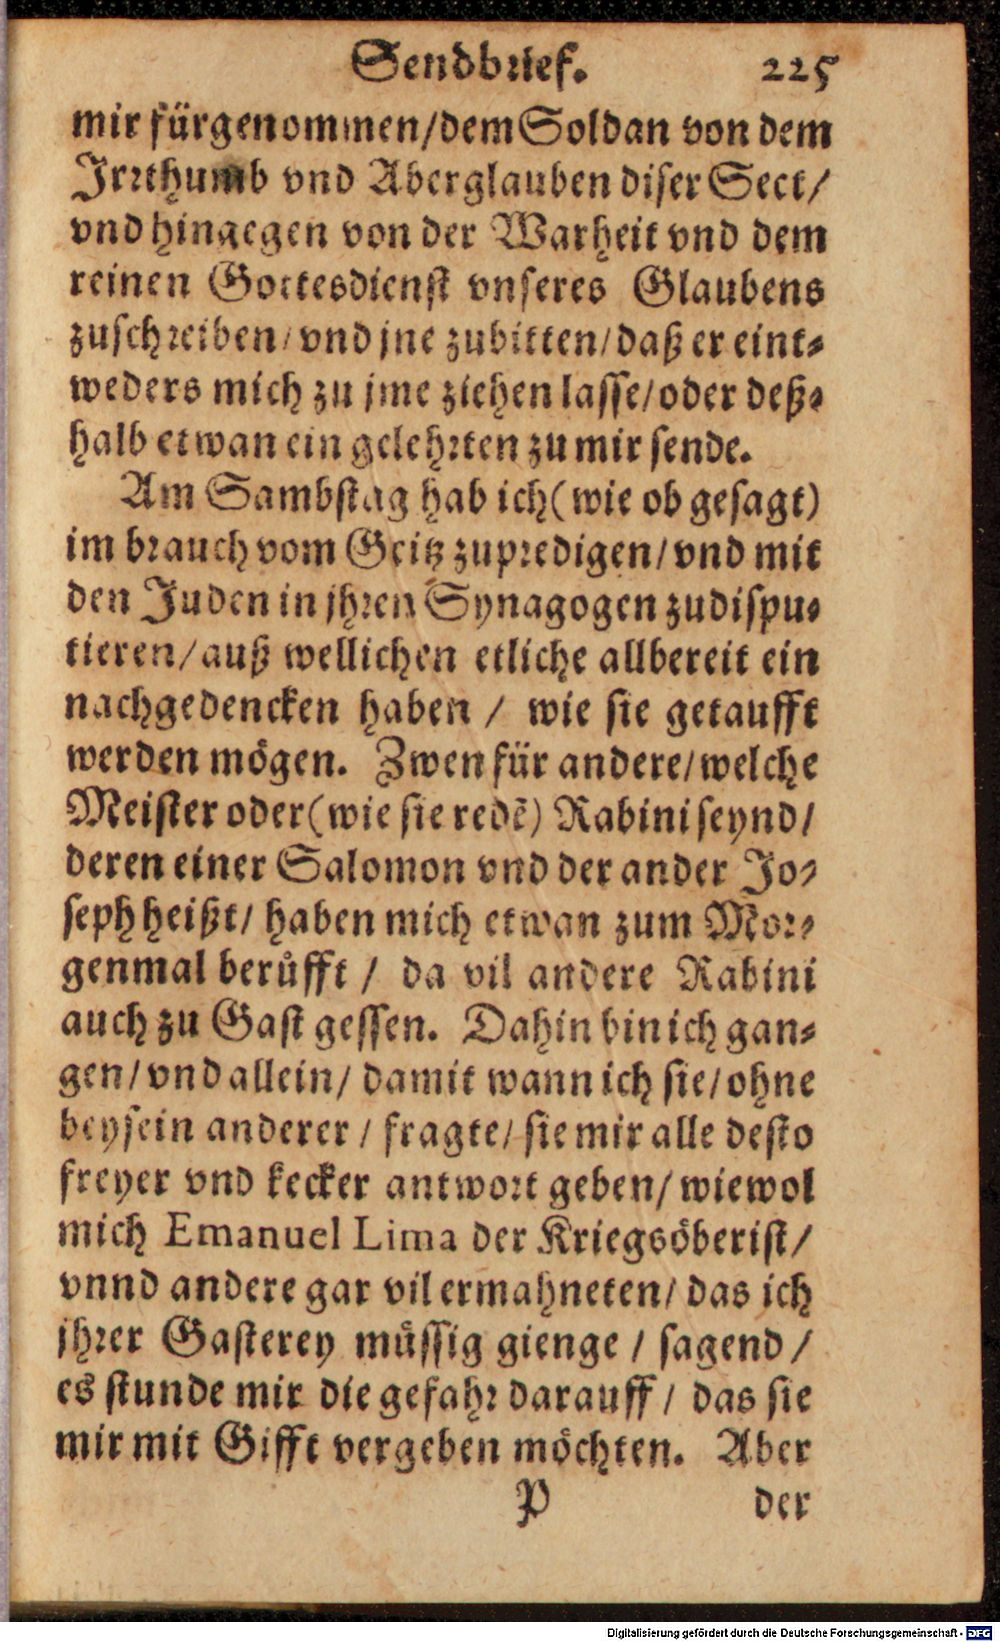 Sendbrief. 225
mir fürgenommen/dem Soldan von dem
Irrthumb vnd Aberglauben diser Sect/
vnd hingegen von der Warheit vnd dem
reinen Gottesdienst vnseres Glaubens
zuschreiben/ vnd jne zubitten/ daß er eint-
weders mich zu jme ziehen lasse/ oder deß-
halb etwan ein gelehrten zu mir sende.
Am Sambstag hab ich (wie ob gesagt)
im brauch vom Geitz zupredigen/ vnd mit
den Juden in jhren Synagogen zudispu-
tieren/ auß wellichen etliche allbereit ein
nachgedencken haben / wie sie getaufft
werden mögen. Zwen für andere/ welche
Meister oder (wie sie redẽ) Rabini seynd/
deren einer Salomon vnd der ander Jo-
seph heißt/ haben mich etwan zum Mor-
genmal berůfft / da vil andere Rabini
auch zu Gast gessen. Dahin bin ich gan-
gen/ vnd allein/ damit wann ich sie/ ohne
beysein anderer / fragte/ sie mir alle desto
freyer vnd kecker antwort geben/ wiewol
mich Emanuel Lima der Kriegsöberist/
vnnd andere gar vil ermahneten/ das ich
jhrer Gasterey müssig gienge / sagend /
es stunde mir die gefahr darauff / das sie
mir mit Gifft vergeben möchten. Aber
P der
Digitalisierung gefördert durch die Deutsche Forschungsgemeinschaft - DFG